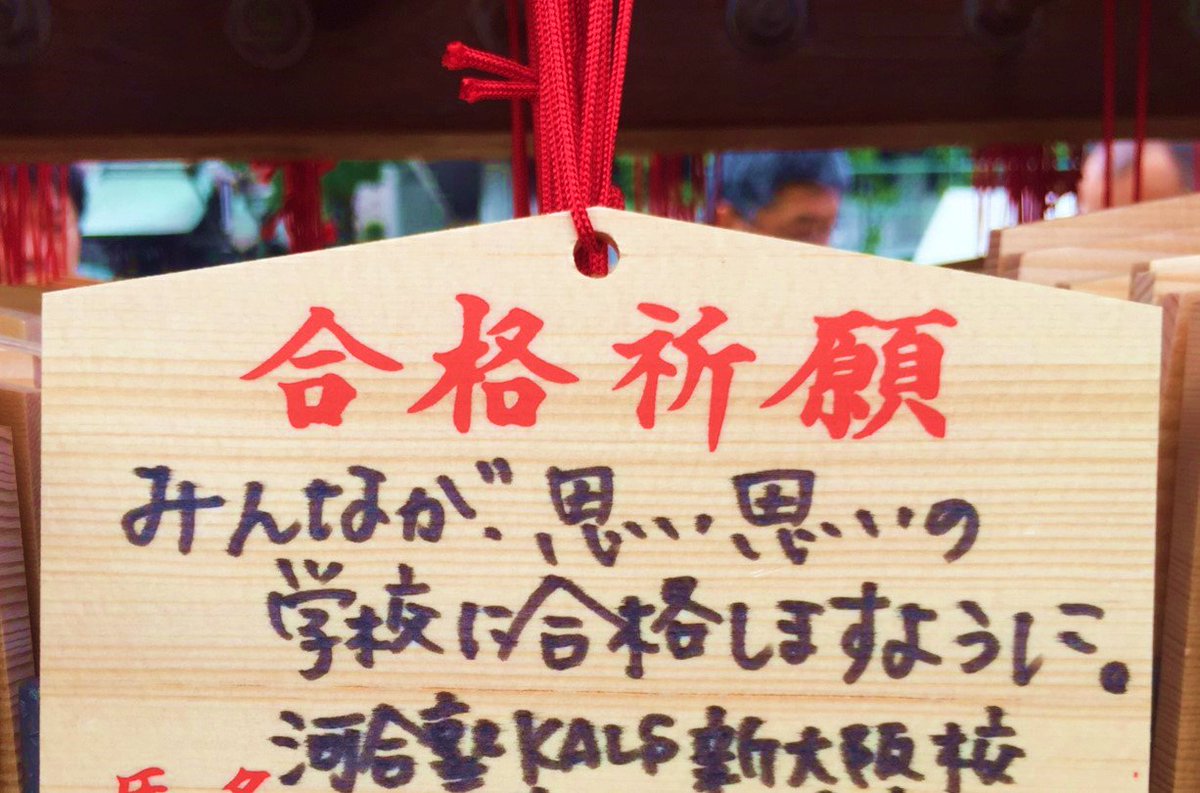 合格祈願
みんなが、思い思いの
学校に合格しますように。
河合塾KALS新大阪校
氏名